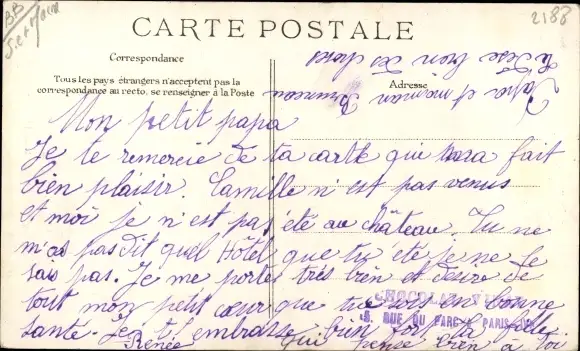 BB
S.et Marne
2188
CARTE POSTALE
Correspondance
Tous les pays étrangers n'acceptent pas la
correspondance au recto, se renseigner à la Poste
Adresse
Papa et maman
Mon petit papa
Je te remercie de ta carte qui m'ara fait
bien plaisir. Camille n'est pas venus
et moi je n'est pas été au château. Tu ne
m'as pas dit quel Hôtel que tu été je ne le
sais pas. Je me porte très bien et désire de
tout mon petit cœur que tu sois en bonne
santé. Je t'embrasse bien fort ta fille
Renée qui pense bien à toi
RUE DU PARC PARIS